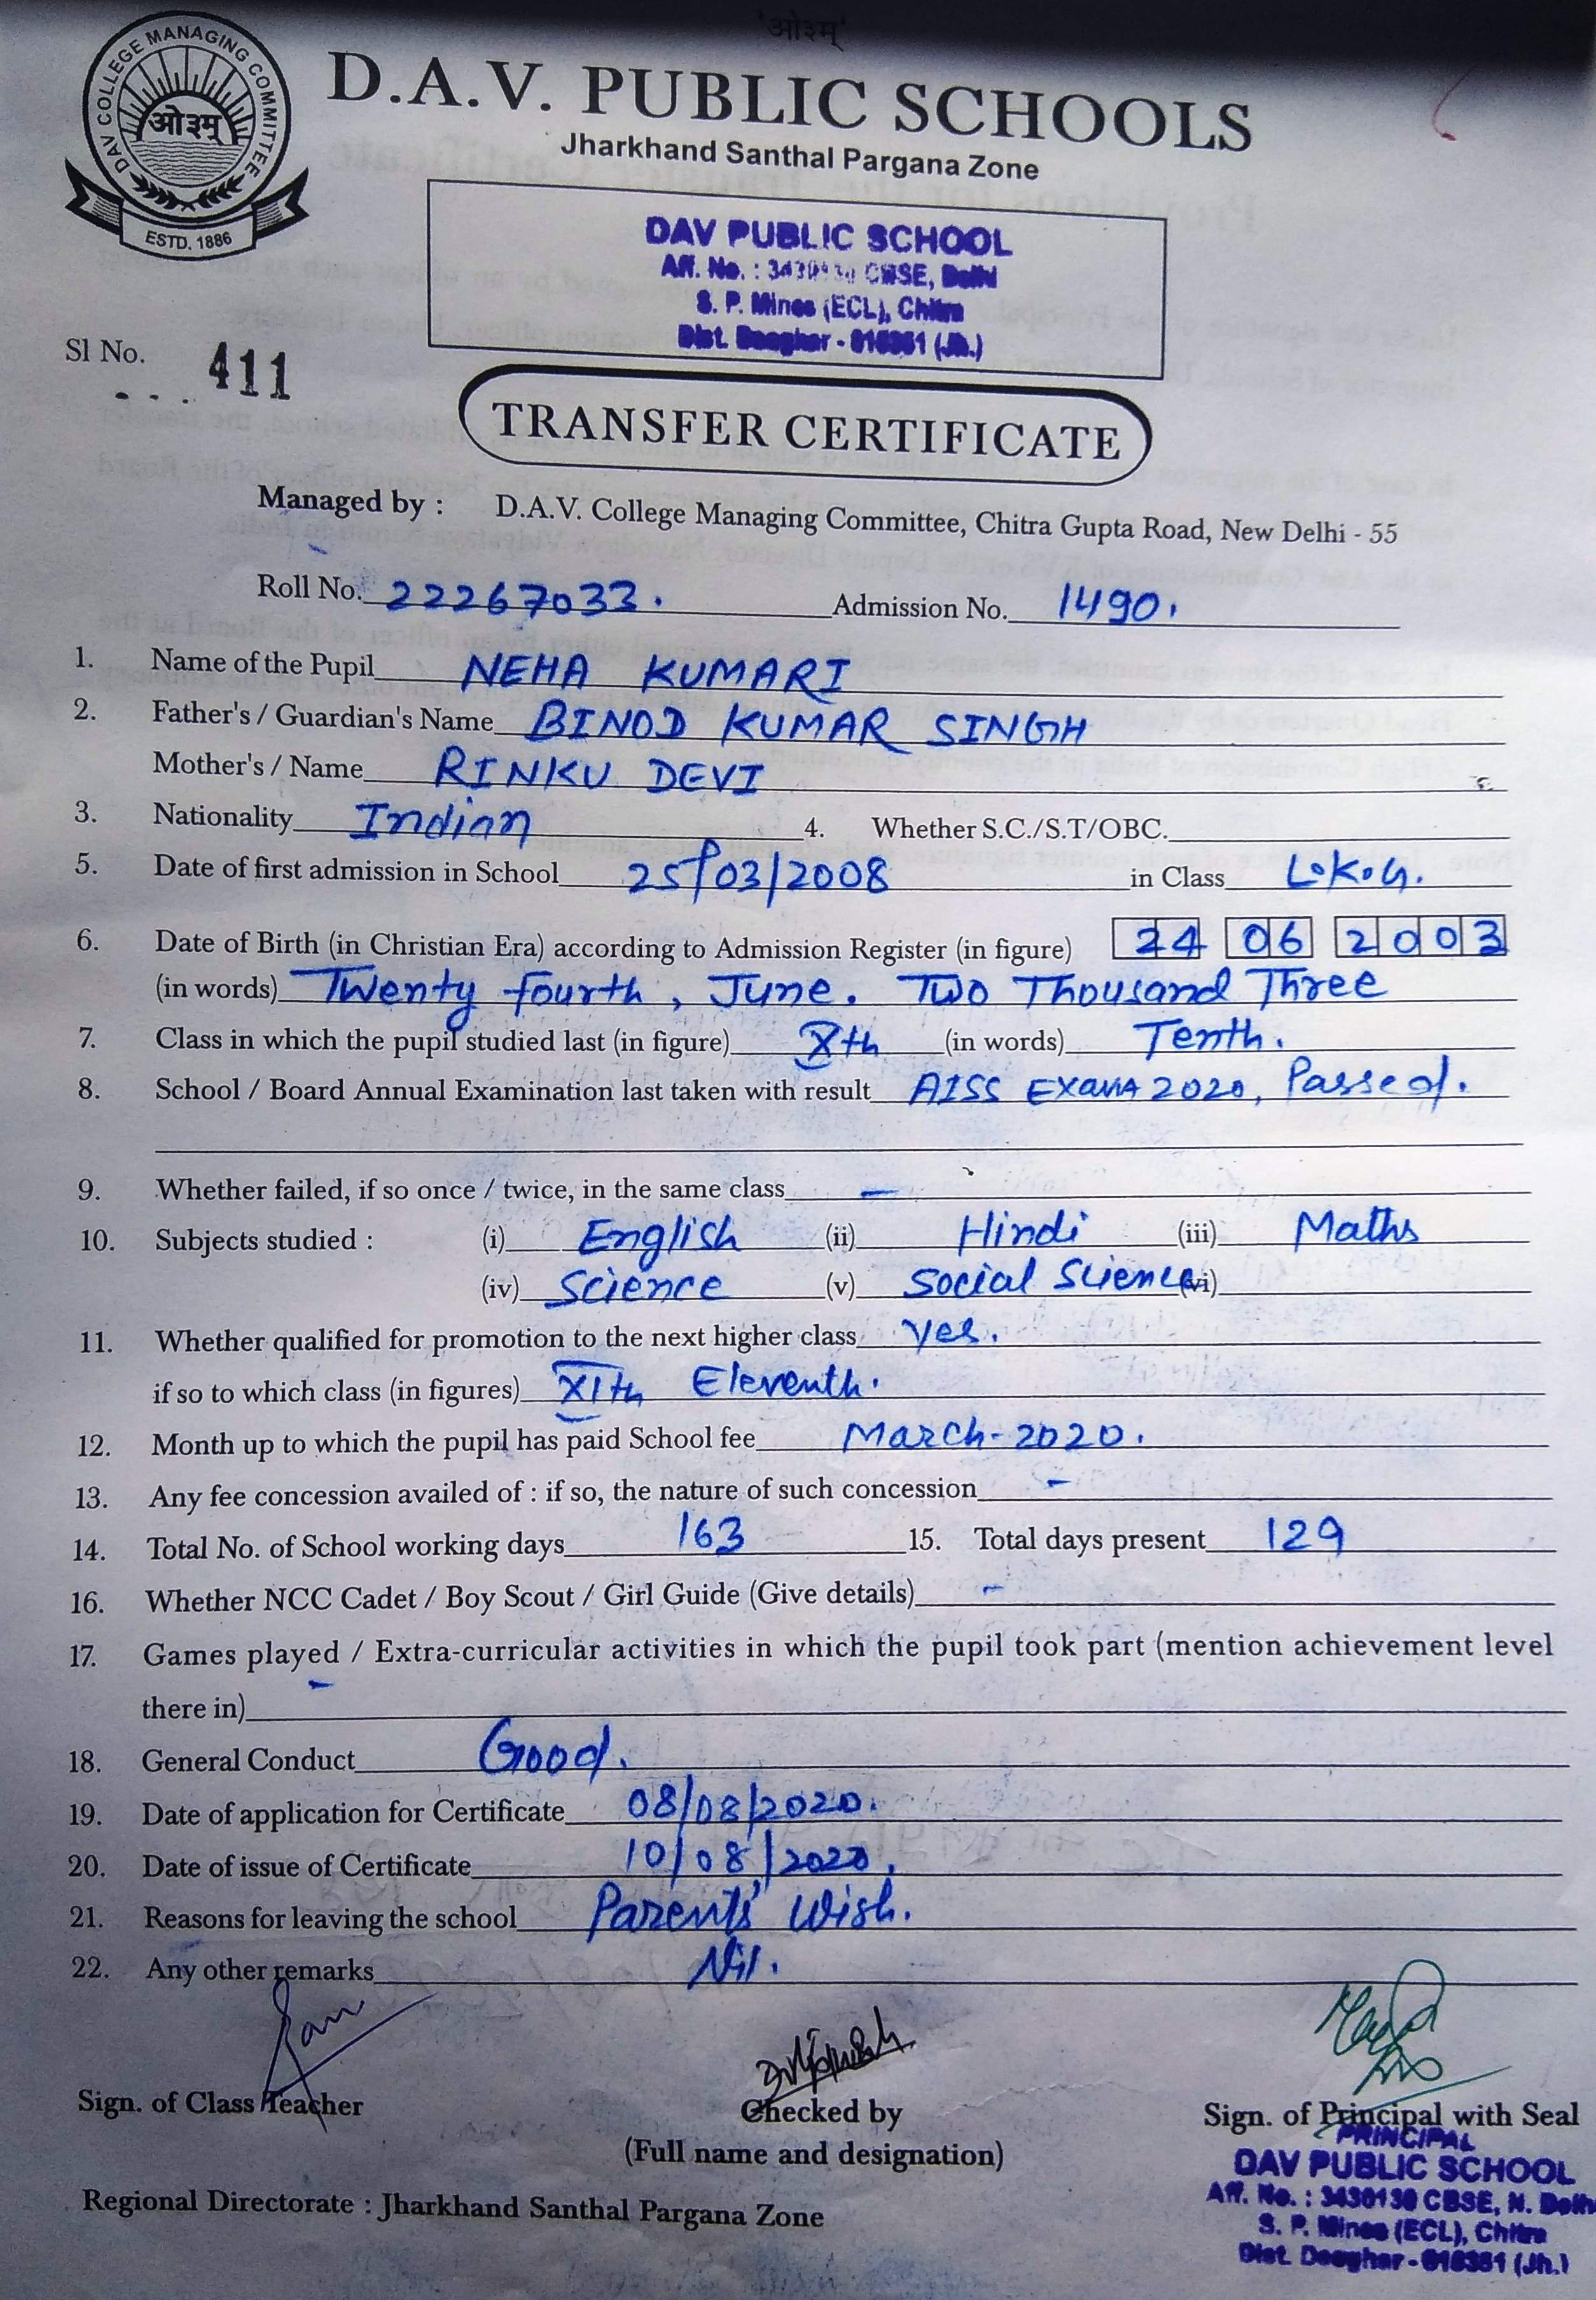 'ओ३म्'
DAV COLLEGE MANAGING COMMITTEE
ओ३म्
ESTD. 1886
D.A.V. PUBLIC SCHOOLS
Jharkhand Santhal Pargana Zone
DAV PUBLIC SCHOOL
Aff. No. : 3430130 CBSE, Delhi
S. P. Mines (ECL), Chitra
Dist. Deoghar - 815351 (Jh.)
Sl No. 411
TRANSFER CERTIFICATE
Managed by : D.A.V. College Managing Committee, Chitra Gupta Road, New Delhi - 55
Roll No. 22267033. Admission No. 1490.
1. Name of the Pupil NEHA KUMARI
2. Father's / Guardian's Name BINOD KUMAR SINGH
Mother's / Name RINKU DEVI
3. Nationality Indian 4. Whether S.C./S.T/OBC.
5. Date of first admission in School 25/03/2008 in Class L.K.G.
6. Date of Birth (in Christian Era) according to Admission Register (in figure) 24 06 2003
(in words) Twenty fourth, June. Two Thousand Three
7. Class in which the pupil studied last (in figure) Xth (in words) Tenth.
8. School / Board Annual Examination last taken with result AISS EXAMA 2020, Passed.
9. Whether failed, if so once / twice, in the same class -
10. Subjects studied : (i) English (ii) Hindi (iii) Maths
(iv) Science (v) Social Science (vi)
11. Whether qualified for promotion to the next higher class yes.
if so to which class (in figures) XIth Eleventh.
12. Month up to which the pupil has paid School fee March-2020.
13. Any fee concession availed of : if so, the nature of such concession -
14. Total No. of School working days 163 15. Total days present 129
16. Whether NCC Cadet / Boy Scout / Girl Guide (Give details) -
17. Games played / Extra-curricular activities in which the pupil took part (mention achievement level
there in) -
18. General Conduct Good.
19. Date of application for Certificate 08/08/2020.
20. Date of issue of Certificate 10/08/2020.
21. Reasons for leaving the school Parents' Wish.
22. Any other remarks Nil.
Sign. of Class Teacher
Checked by
(Full name and designation)
Sign. of Principal with Seal
PRINCIPAL
DAV PUBLIC SCHOOL
Aff. No. : 3430130 CBSE, N. Delhi
S. P. Mines (ECL), Chitra
Dist. Deoghar - 815351 (Jh.)
Regional Directorate : Jharkhand Santhal Pargana Zone